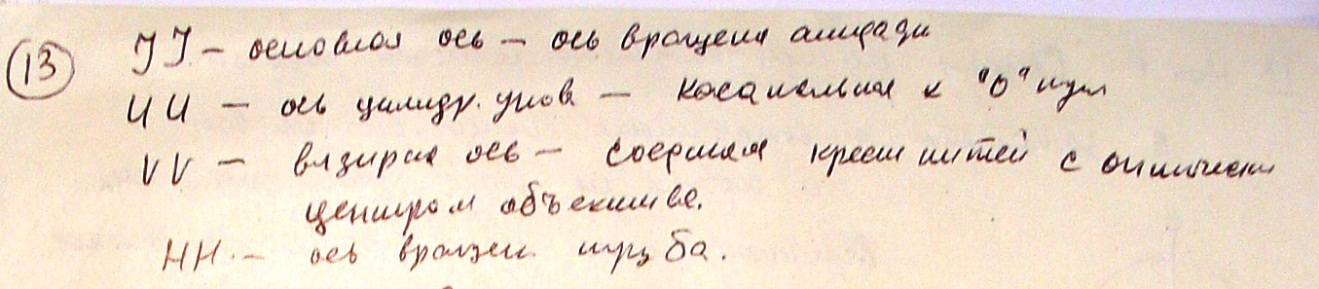 13 JJ – основная ось – ось вращения алидады
UU – ось цилидр. уров – касательная к "0" пузл
VV – визирная ось – соединяя крест нитей с оптическ
центром объектива.
HH – ось вращен. труба.